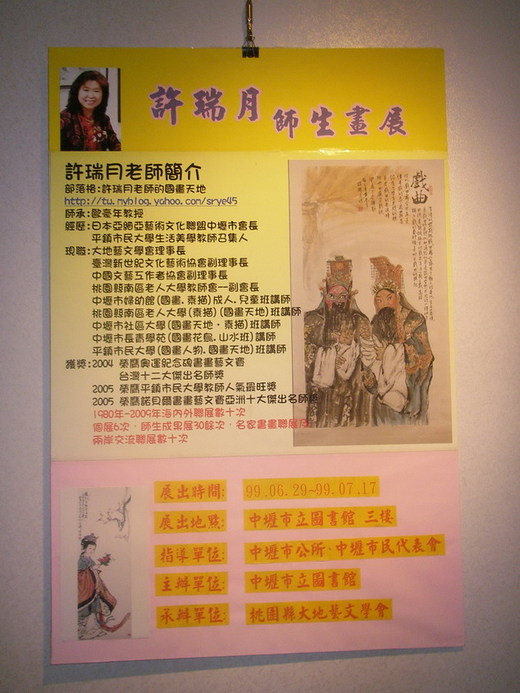 許瑞月師生畫展
許瑞月老師簡介
部落格:許瑞月老師的國畫天地
http://tw.myblog.yahoo.com/srye45
師承:歐豪年教授
經歷:日本亞細亞藝術文化聯盟中壢市會長
平鎮市民大學生活美學教師召集人
現職:大地藝文學會理事長
臺灣新世紀文化藝術協會副理事長
中國文藝工作者協會副理事長
桃園縣南區老人大學教師會--副會長
中壢市婦幼館(國畫,素描)成人,兒童班講師
桃園縣南區老人大學(素描)(國畫天地)班講師
中壢市社區大學(國畫天地,素描)班講師
中壢市長青學苑(國畫花鳥,山水班)講師
平鎮市民大學(國畫人物,國畫天地)班講師
獲獎:2004 榮膺奧運紀念碑書畫藝文賽
台灣十二大傑出名師獎
2005 榮膺平鎮市民大學教師人氣最旺獎
2005 榮膺諾貝爾書畫藝文賽亞洲十大傑出名師獎
1980年-2009年海內外聯展數十次
個展6次, 師生成果展30餘次, 名家書畫聯展
兩岸交流聯展數十次
戲曲
展出時間: 99.06.29~99.07.17
展出地點: 中壢市立圖書館 三樓
指導單位: 中壢市公所·中壢市民代表會
主辦單位: 中壢市立圖書館
承辦單位: 桃園縣大地藝文學會